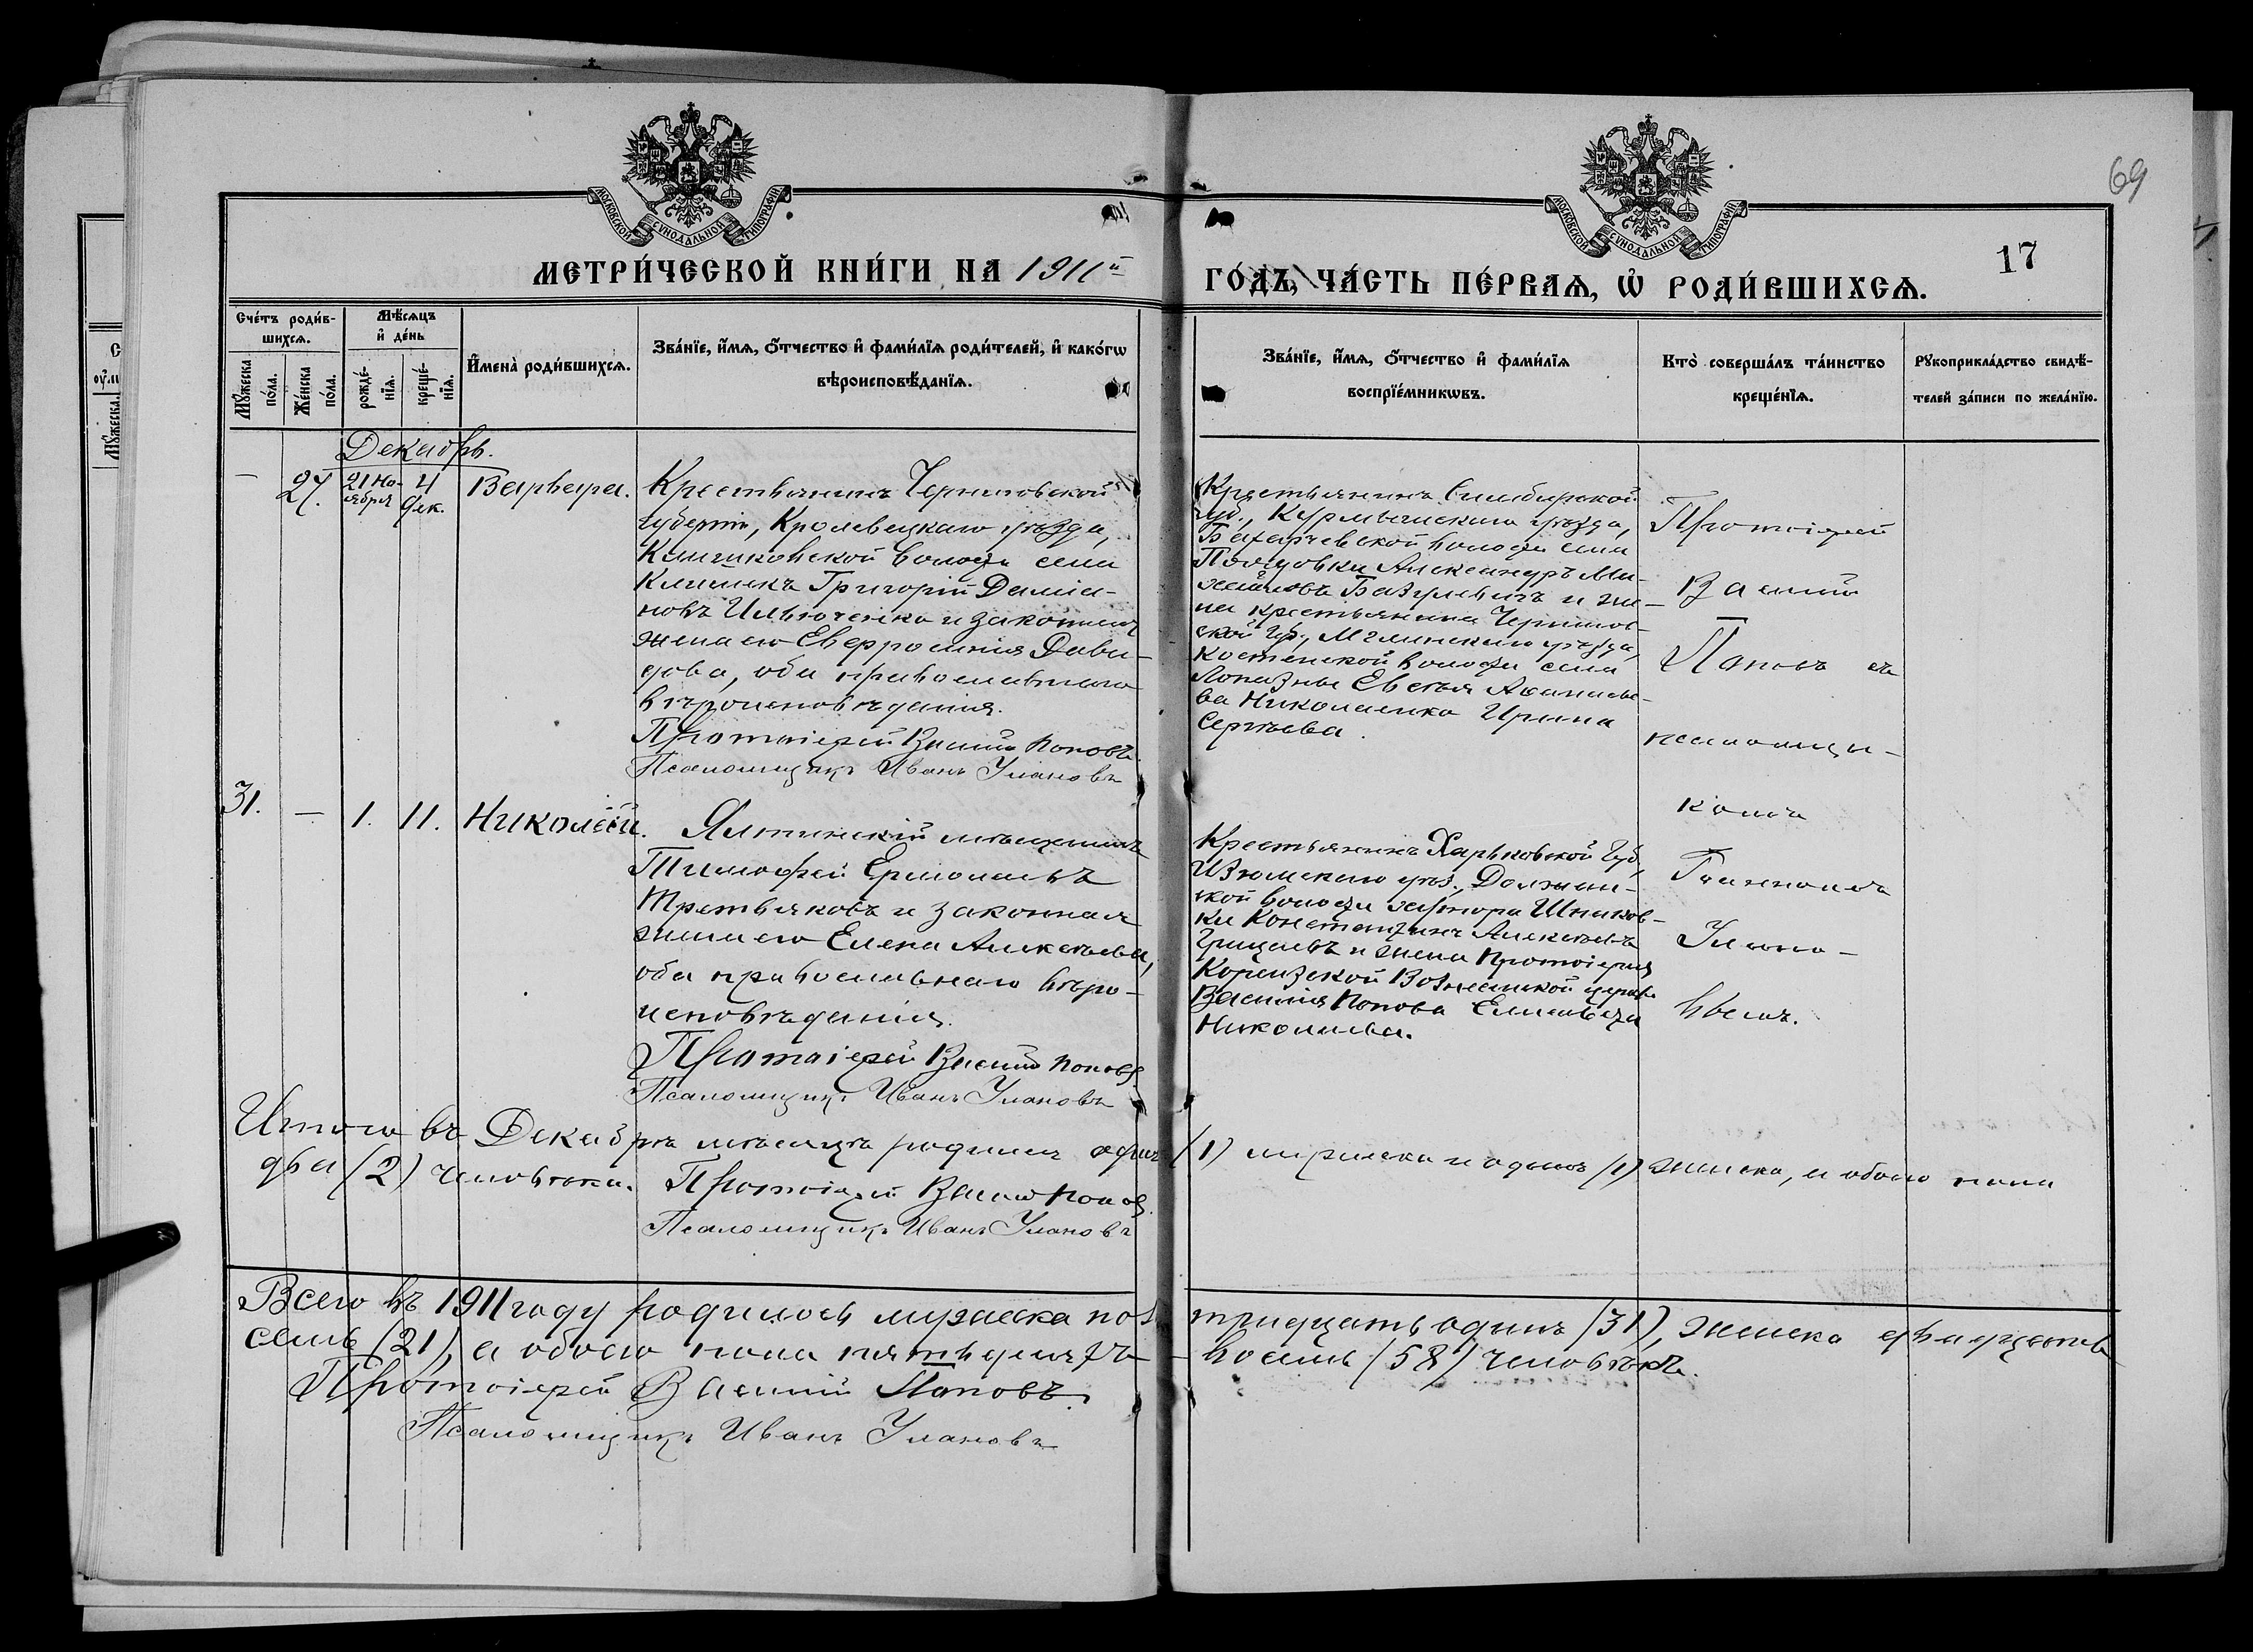 69
17
МОСКОВСКОЙ СѴНОДАЛЬНОЙ ТИПОГРАФІИ
МОСКОВСКОЙ СѴНОДАЛЬНОЙ ТИПОГРАФІИ
МЕТРИ́ЧЕСКОЙ КНИ́ГИ НА 1911й
ГО́ДЪ, ЧА́СТЬ ПЕ́РВАѦ, Ѡ҆ РОДИ́ВШИХСѦ.
Сче́тъ роди́в-
шихсѧ.
Мѣ́сѧцъ
и҆ де́нь
Мꙋ́жеска по́ла.
Же́нска по́ла.
рожде́-нїѧ.
креще́-нїѧ.
И҆мена̀ роди́вшихсѧ.
Зва́нїе, и҆́мѧ, ѻ҆́тчество и҆ фами́лїѧ роди́телей, и҆ како́гѡ
вѣроисповѣ́данїѧ.
Зва́нїе, и҆́мѧ, ѻ҆́тчество и҆ фами́лїѧ
воспрїе́мникѡвъ.
Кто̀ соверша́лъ та́инство
креще́нїѧ.
Рꙋкоприкла́дство свидѣ́-
телей за́писи по жела́нїю.
Декабрь.
— 27. 21 Но-ября 4 Дек. Варвара.
Крестьянинъ Черниговской
губерніи, Кролевецкаго уѣзда,
Клишковской волости села
Клишекъ Григорій Даміа-
новъ Ильюченко и законная
жена его Евфросинія Дави-
дова, оба православнаго
вѣроисповѣданія.
Протоіерей Василій Поповъ.
Псаломщикъ Иванъ Улановъ
Крестьянинъ Симбирской
губ., Курмышскаго уѣзда,
волости села
Александръ Ми-
хайловъ и же-
на крестьянина Чернигов-
ской губ., Мглинскаго уѣзда,
Костенской волости села
Лопазны Евгенія
ва Николаенко Ирина
Сергѣева.
Протоіерей
Василій
Поповъ съ
псаломщи-
комъ
Іоанномъ
Улано-
вымъ.
31. — 1. 11. Николай.
Ялтинскій мѣщанинъ
Тимофей Ермолаевъ
Третьяковъ и законная
жена его Елена Алексѣева,
оба православнаго вѣро-
исповѣданія.
Протоіерей Василій Поповъ.
Псаломщикъ Иванъ Улановъ
Крестьянинъ Харьковской губ,
Изюмскаго уѣз.,
ской волости хутора
ки Константинъ Алексѣевъ
Грицаевъ и жена протоіерея
Кореизской Вознесенской церкви
Василія Попова Елисавета
Николаева.
Итого въ Декабрѣ мѣсяцѣ родился одинъ (1) мужеска и одинъ (1) женска, а обоего пола
два (2) человѣка. Протоіерей Василій Поповъ.
Псаломщикъ Иванъ Улановъ
Всего въ 1911 году родилось мужеска пола тридцать одинъ (31), женска двадцать
семь (27), а обоего пола пятьдесятъ восемь (58) человѣкъ.
Протоіерей Василій Поповъ.
Псаломщикъ Иванъ Улановъ